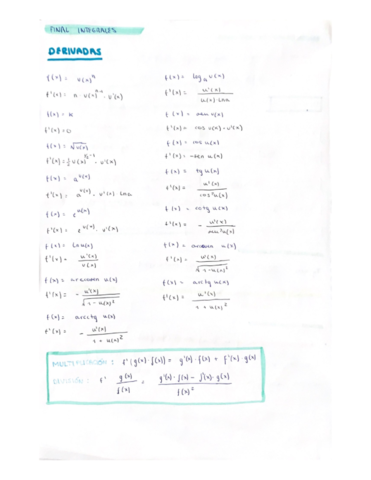 FINAL INTEGRALES
DERIVADAS
f(x) = u(x)ⁿ
f'(x) = n · u(x)ⁿ⁻¹ · u'(x)
f(x) = K
f'(x) = 0
f(x) = √u(x)
f'(x) = 1/2 u(x) · u'(x)
f(x) = a^u(x)
f'(x) = a^u(x) · u'(x) · Lna
f(x) = e^u(x)
f'(x) = e^u(x) · u'(x)
f(x) = Ln u(x)
f'(x) = u'(x) / u(x)
f(x) = u(x)
f'(x) = - u'(x) / √1 - u(x)²
f(x) = u(x)
f'(x) = - u'(x) / 1 + u(x)²
f(x) = log_a u(x)
f'(x) = u'(x) / u(x) · Lna
f(x) = sen u(x)
f'(x) = cos u(x) · u'(x)
f(x) = cos u(x)
f'(x) = -sen u(x)
f(x) = tg u(x)
f'(x) = u'(x) / cos² u(x)
f(x) = cotg u(x)
f'(x) = - u'(x) / sen² u(x)
f(x) = arcsen u(x)
f'(x) = u'(x) / √1 - u(x)²
f(x) = arctg u(x)
f'(x) = u'(x) / 1 + u(x)²
MULTIPLICACIÓN : f'(g(x) · f(x)) = g'(x) · f(x) + f'(x) · g(x)
DIVISIÓN : f' g(x) / f(x) = g'(x) · f(x) - f'(x) · g(x) / f(x)²